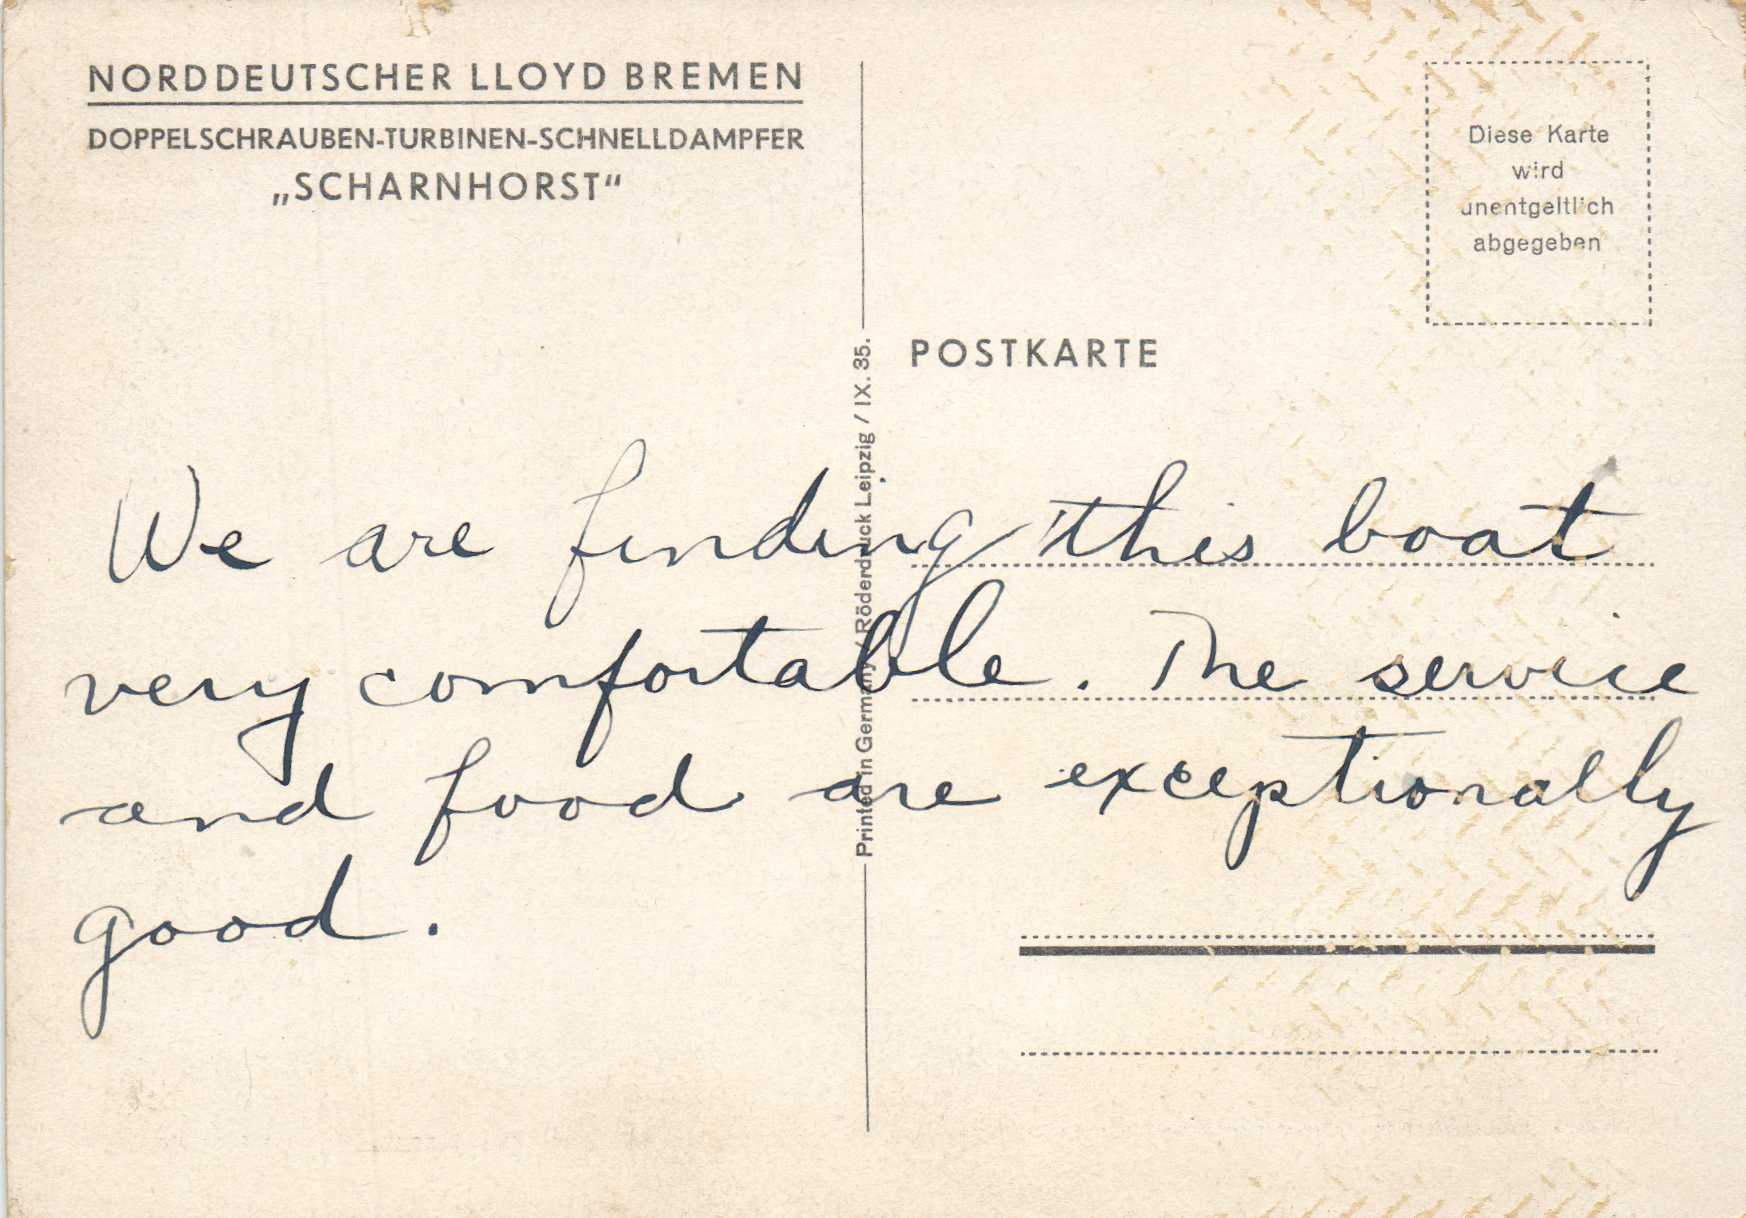 NORDDEUTSCHER LLOYD BREMEN
DOPPELSCHRAUBEN-TURBINEN-SCHNELLDAMPFER
„SCHARNHORST“
Diese Karte
wird
unentgeltlich
abgegeben
POSTKARTE
Printed in Germany / Röderdruck Leipzig / IX. 35.
We are finding this boat
very comfortable. The service
and food are exceptionally
good.